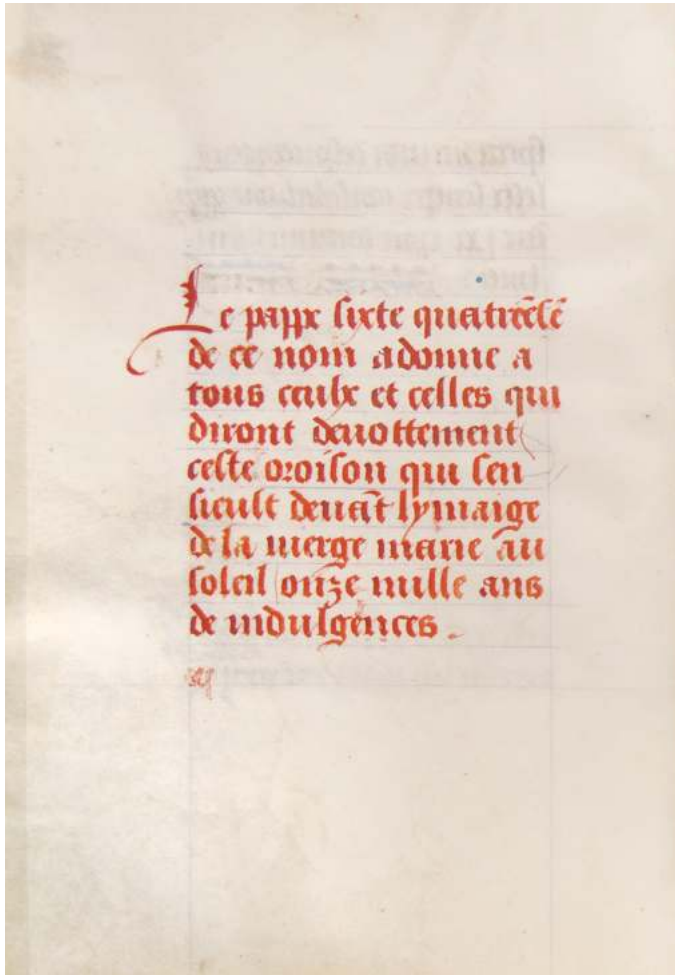 Le pape sixte quatrẽsẽ
de ce nom a donne a
tous ceulx et celles qui
diront deuottement
ceste oroison qui sen
sieult deuãt lymaige
de la uierge marie au
soleil onze mille ans
de indulgences .